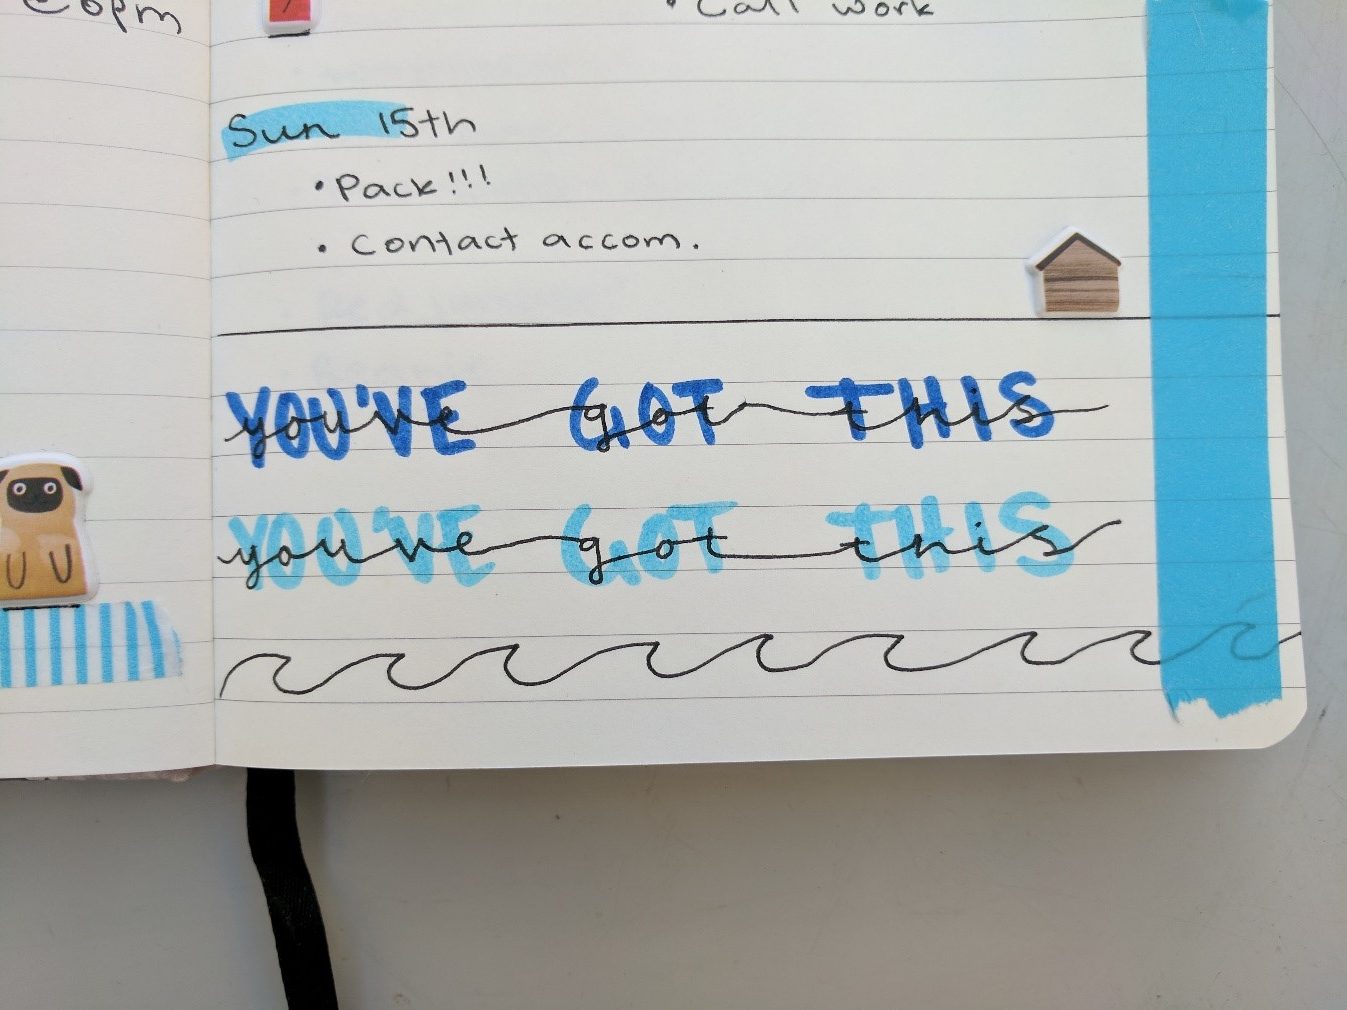 6pm
• Call work
Sun 15th
• Pack!!!
• Contact accom.
YOU'VE GOT THIS
you've got this
YOU'VE GOT THIS
you've got this